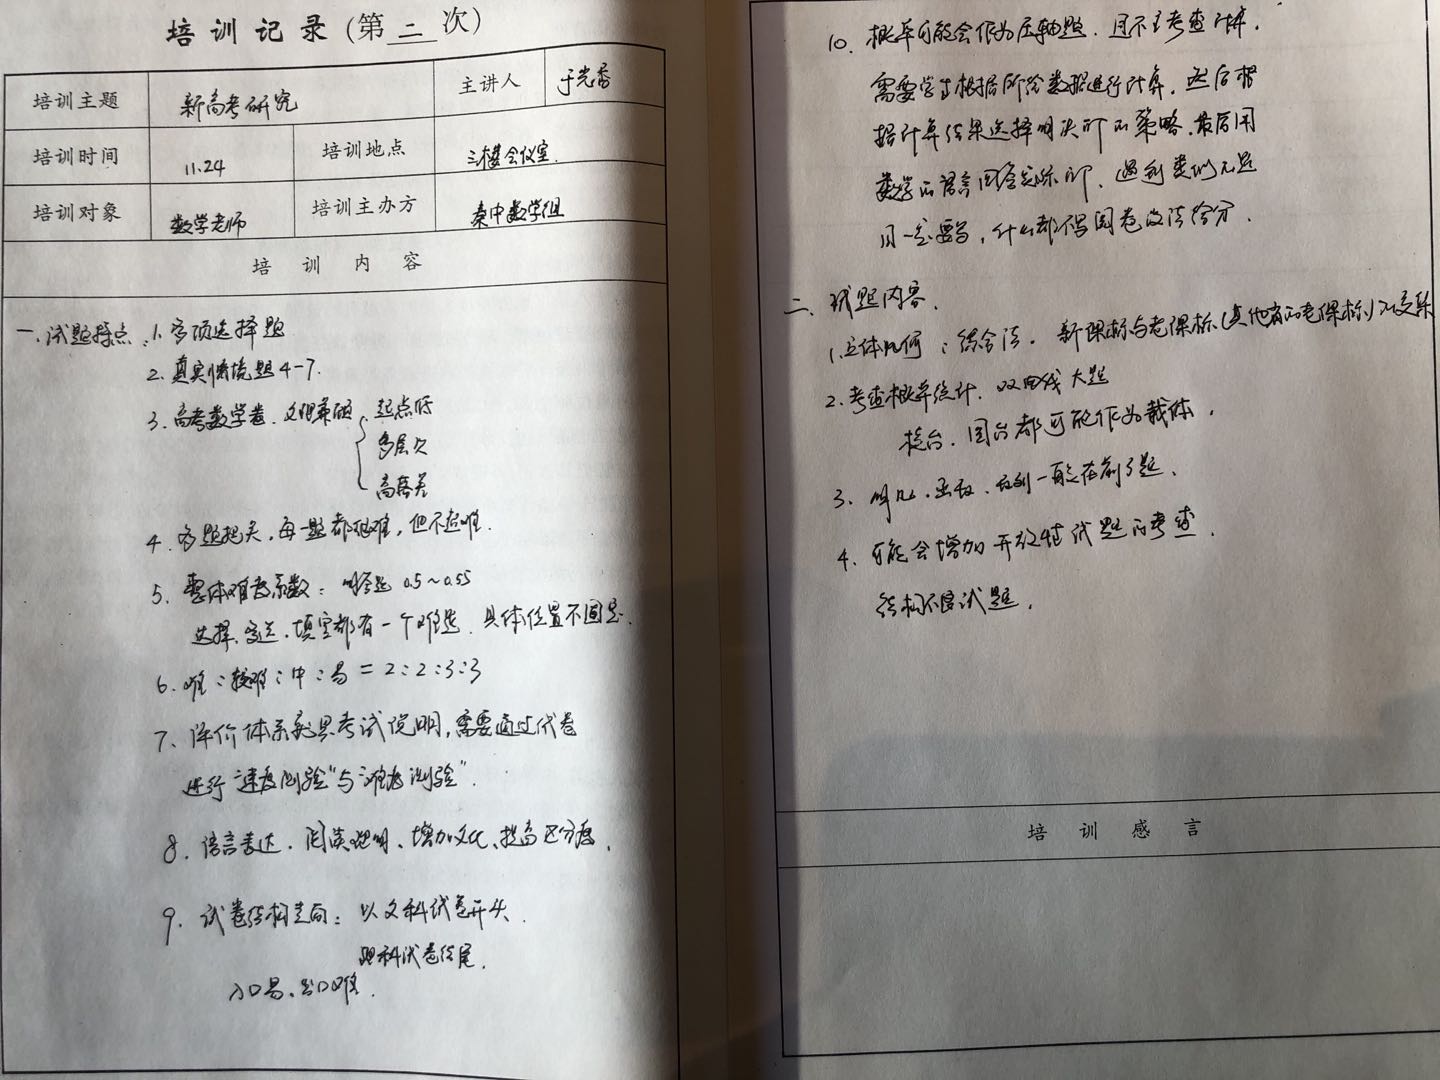 培训记录(第二次)
培训主题 新高考研究 主讲人
培训时间 11.24 培训地点 三楼会议室.
培训对象 数学老师 培训主办方 秦中数学组
培训内容
一.试题特点:1.多项选择题
2.真实情境题4-7.
3.高考数学卷.文理兼顾 起点低
多层次
高落差
4.多题把关,每一题都很难,但不超难.
5.整体难度系数: 0.5~0.55
选择、多选、填空都有一个难题.具体位置不固定.
6.难:较难:中:易=2:2:3:3
7、评价体系就是考试说明,需要通过试卷
进行“速度测验”与“难度测验”.
8.语言表达.阅读理解、增加文化、提高区分度.
9.试卷结构走向:以文科试卷开头.
理科试卷结尾.
入口易、出口难.
10.概率可能会作为压轴题.且不主考查计算.
需要学生根据所给数据进行计算.然后根
据计算结果选择解决的策略.最后用
数学的语言回答实际的.遇到类似的题
目一定要写,什么都不写阅卷没法给分.
二.试题内容.
1.立体几何:综合法.新课标与老课标(其他省的老课标)的交集
2.考查概率统计.双曲线大题
棱台.圆台都可能作为载体.
3.解几.函数.数列一般在前3题.
4.可能会增加开放性试题的考查.
结构不良试题.
培训感言